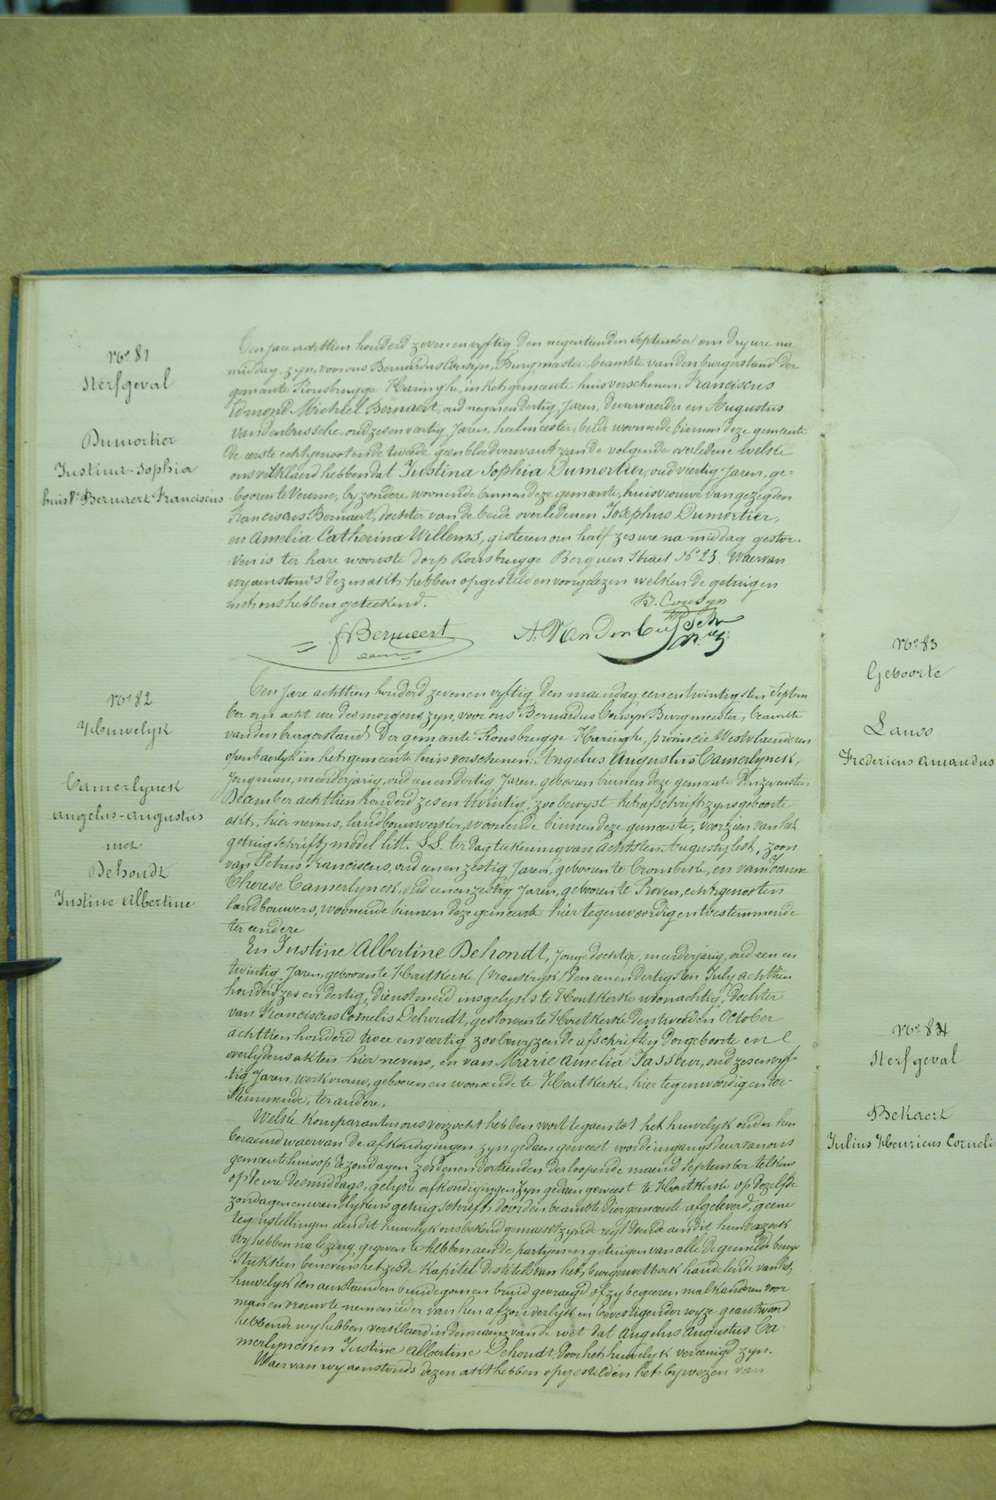 No 81
Sterfgeval
Dumortier
Justina-Sophia
huisv. Bernaert Franciscus
Een jare achttien honderd zeven en vyftig den negentienden September om dry ure na
middag, zyn, voor ons Bernardus Coesyn, Burgmaester, beambte van den burgerstand der
gemeente Rousbrugge Haringhe, in het gemeente huis verschenen Franciscus
Edmond Michiel Bernaert, oud negen en dertig Jaren, deurwaerder en Augustus
Vandenbussche, oud zes en veertig Jaren, heelmeester, beide woonende binnen deze gemeente
de eerste echtgenoot en de tweede geen bloedverwant van de volgende overledene welke
ons verklaerd hebben dat Justina Sophia Dumortier, oud veertig Jaren, ge-
boren te Veurne, byzondere, woonende binnen deze gemeente, huisvrouwe van gezegden
Franciscus Bernaert, dochter van de beide overledenen Josephus Dumortier,
en Amelia Catherina Willems, gisteren om half zes ure na middag gestor-
ven is ter hare woonste dorp Rousbrugge Berguen Straet No 23. Waervan
wy aenstonds dezen akt hebben opgesteld en voorgelezen welken de getuigen
met ons hebben geteekend.
B. Coesyn
F Bernaert A. Vandenbussche
No 82
Huwelyk
Camerlynck
Angelus-Augustus
met
Dehondt
Justine Albertine
Een Jare achttien honderd zeven en vyftig den maendag een en twintigsten Septem
ber om acht ure des morgens zyn, voor ons Bernardus Coesyn Burgmeester, beambte
van den burgerstand der gemeente Rousbrugge Haringhe, provincie Westvlaenderen
openbaerlyk in het gemeente huis verschenen. Angelus Augustus Camerlynck,
Jongman, meerderjarig, oud en dertig Jaren, geboren binnen deze gemeente den
December achttien honderd zes en twintig, zoo bewyst het afschrift zyns geboorte
akt, hier nevens, landbouwwerker, woonende binnen deze gemeente, voorzien van het
getuigschrift, model litt. ter dagteekening van achtsten Augusty lest, zoon
van Petrus Franciscus, oud een en zestig Jaren, geboren te Crombeke, en van
Therese Camerlynck, oud een en zestig Jaren, geboren te Proven, echtgenooten
landbouwers, woonende binnen deze gemeente hier tegenwoordig en toestemmende
ter eendere
En Justine Albertine Dehondt, Jonge dochter, meerderjarig, oud een en
twintig Jaren, geboren te Houtkerke (Vrankryk) den een en dertigsten July achttien
honderd zes en dertig, dienstmeid insgelyks te Houtkerke woonachtig, dochter
van Franciscus Cornelis Dehondt, gestorven te Houtkerke den tweeden October
achttien honderd twee en veertig zoo bewyzen de afschriften der geboorte en
overlydens akten hier nevens, en van Marie Amelia Tasseur, oud zes en vyf-
tig Jaren, werkvrouw, geboren en woonende te Houtkerke, hier tegenwoordig en toe-
stemmende, ter andere.
Welke komparanten ons verzocht hebben voort te gaen tot het huwelyk onder hen
beraemd waervan de afkondigingen zyn gedaen geweest voor de ingangdeur van ons
gemeentehuis op de zondagen zesden en dertienden der loopende maend September telkens
op de ure des middags, gelyke afkondigingen zyn gedaen geweest te Houtkerke op dezelfde
zondagen en ure blykens getuigschrift door den beambte dier gemeente afgeleverd, geene
tegenstellingen aen dit huwelyk ons bekend gemaekt zynde regt doende aen dit hun verzoek
Wy hebben na lezing gegeven te hebben aen de partyen en getuigen van alle de gemelde bewys
stukken benevens het zesde kapittel des titels van het burger wetboek handelende van het
huwelyk den aenstaenden bruidegom en bruid gevraegd of zy begeeren malkanderen voor
man en vrouw te nemen ieder van hen afzonderlyk en bevestigender wyze geantwoord
hebbende wy hebben verklaerd in den naem van de wet dat Angelus Augustus Ca-
merlynck en Justine Albertine Dehondt door het huwelyk vereenigd zyn.
Waer van wy aenstonds dezen akt hebben opgesteld in het bywezen van
No 83
Geboorte
Lauwo
Fredericus Amandus
No 84
Sterfgeval
Bekaert
Julius Henricus Corneli